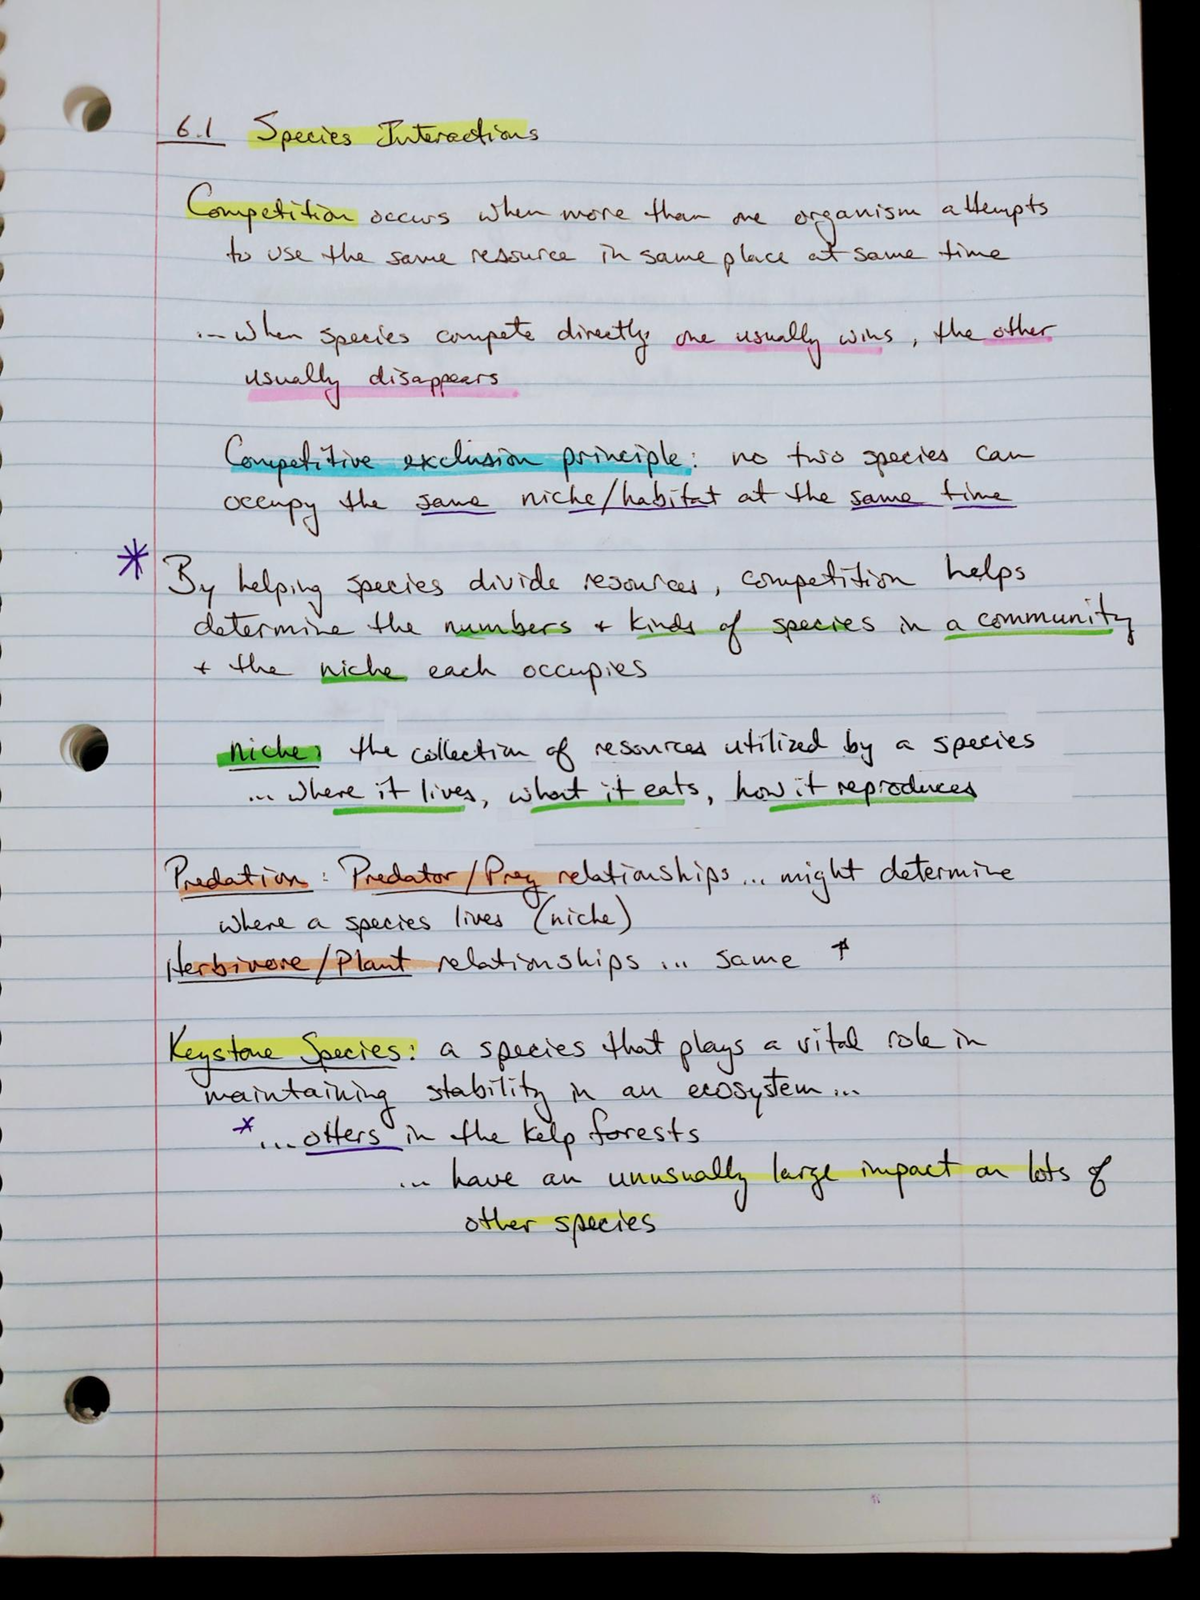 6.1 Species Interactions
Competition occurs when more than one organism attempts
to use the same resource in same place at same time
... when species compete directly one usually wins, the other
usually disappears
Competitive exclusion principle: no two species can
occupy the same niche/habitat at the same time
* By helping species divide resources, competition helps
determine the numbers + kinds of species in a community
+ the niche each occupies
niche: the collection of resources utilized by a species
... where it lives, what it eats, how it reproduces
Predation: Predator/Prey relationships... might determine
where a species lives (niche)
Herbivore/Plant relationships... same ↑
Keystone Species: a species that plays a vital role in
maintaining stability in an ecosystem...
* ...otters in the kelp forests
... have an unusually large impact on lots of
other species